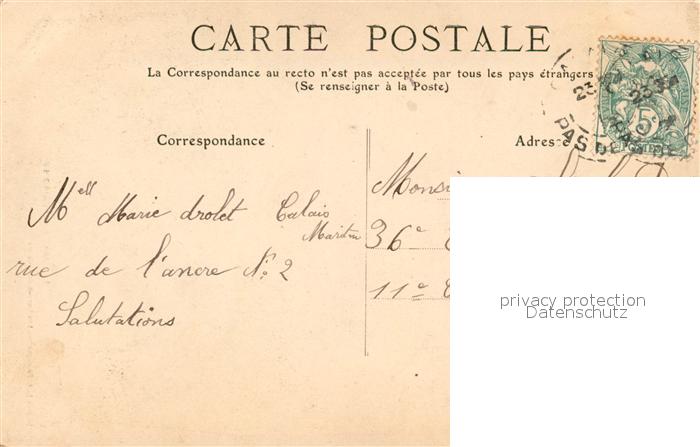 CARTE POSTALE
La Correspondance au recto n'est pas acceptée par tous les pays étrangers
(Se renseigner à la Poste)
Correspondance
Adresse
Mell Marie drolet Calais
Maritm
rue de l'ancre No 2
Salutations
36e
11e
privacy protection
Datenschutz
23
23
5c
PAS DE